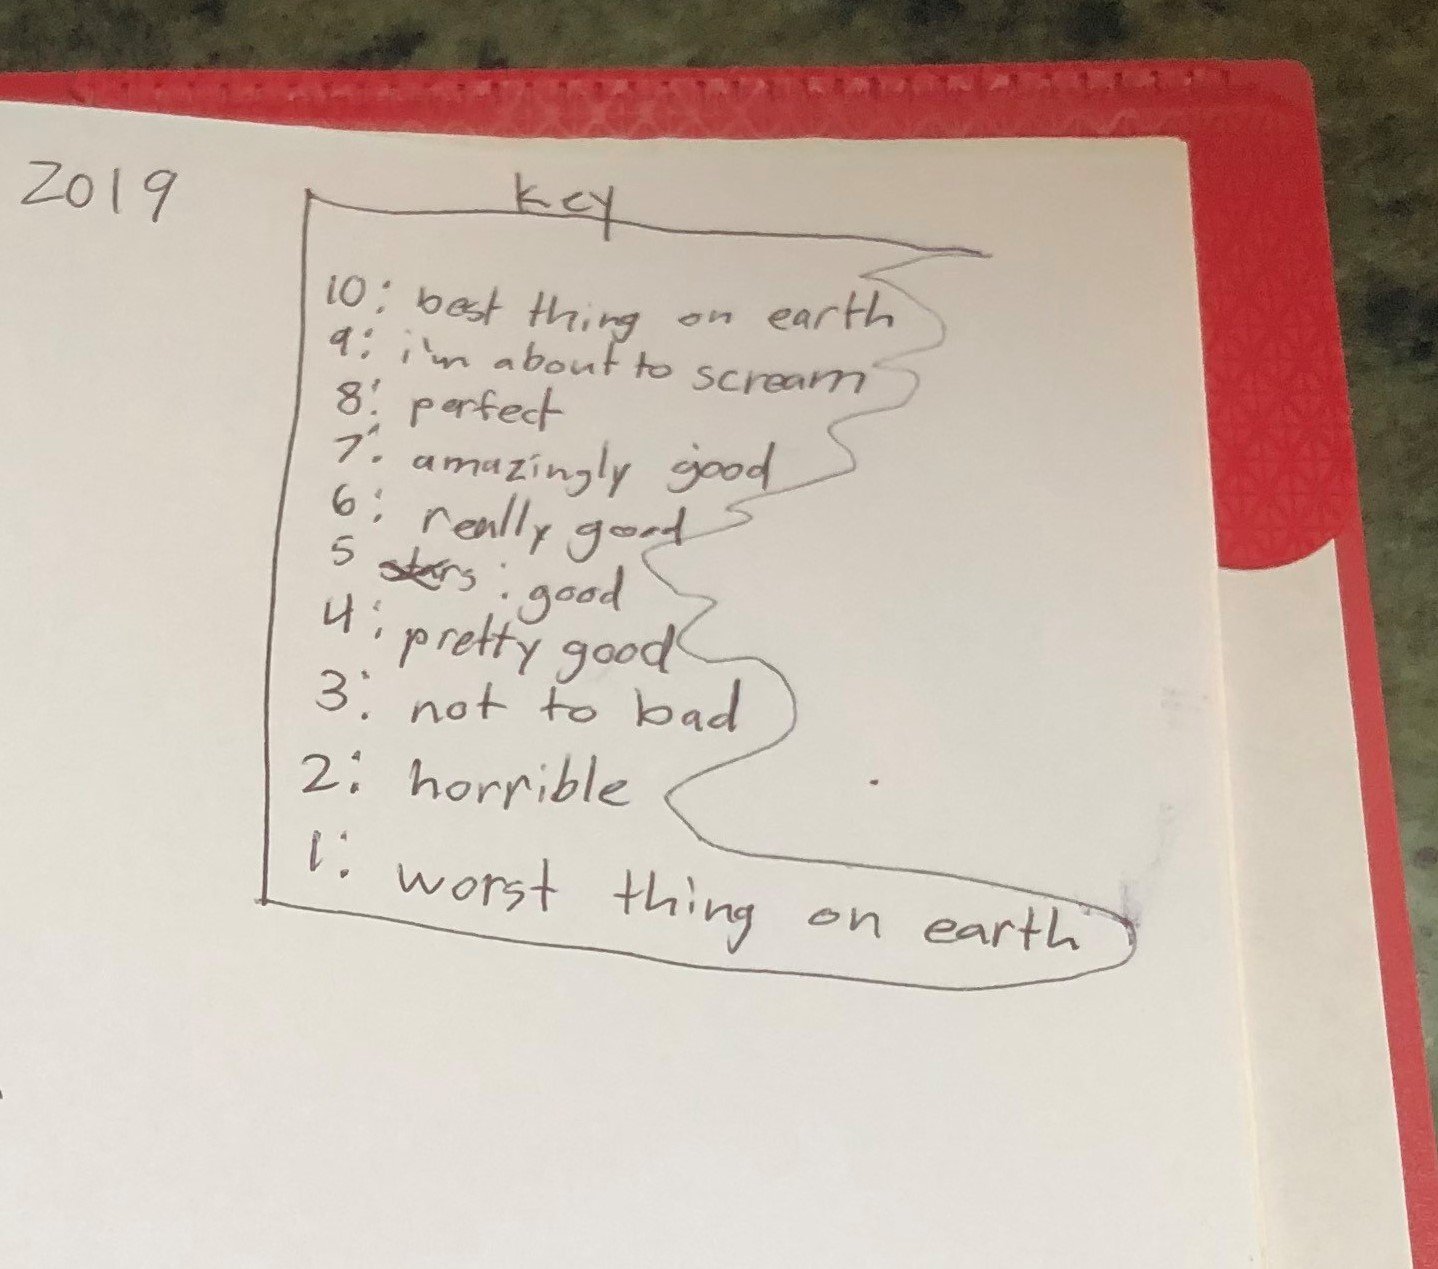 2019
key
10: best thing on earth
9: i'm about to scream
8: perfect
7: amazingly good
6: really good
5 stars : good
4: pretty good
3: not to bad
2: horrible
1: worst thing on earth